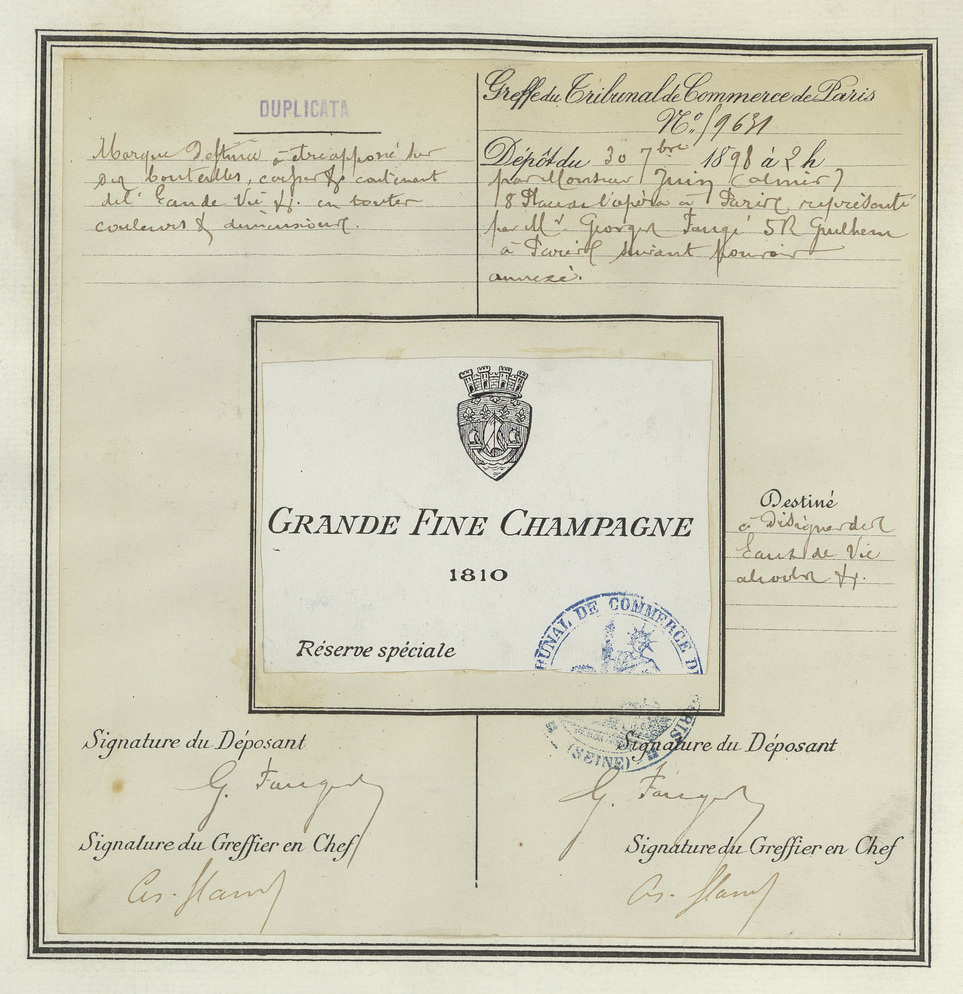 DUPLICATA
Marque Destinée à être apposée sur
des bouteilles, carafes &c contenant
de l' Eau de Vie &. en toutes
couleurs & dimensions.
Greffe du Tribunal de Commerce de Paris
N.°
Dépôt du 30 7bre 1898 à 2 h
par Monsieur
8 Place de l'opéra à Paris représenté
par Mr. Georges Faugé 5 R
à Paris suivant pouvoir
annexé.
GRANDE FINE CHAMPAGNE
1810
Réserve spéciale
TRIBUNAL DE COMMERCE DE PARIS
(SEINE)
Destiné
à Désigner des
Eaux de Vie
alcools &.
Signature du Déposant
G.
Signature du Greffier en Chef
Signature du Déposant
G.
Signature du Greffier en Chef